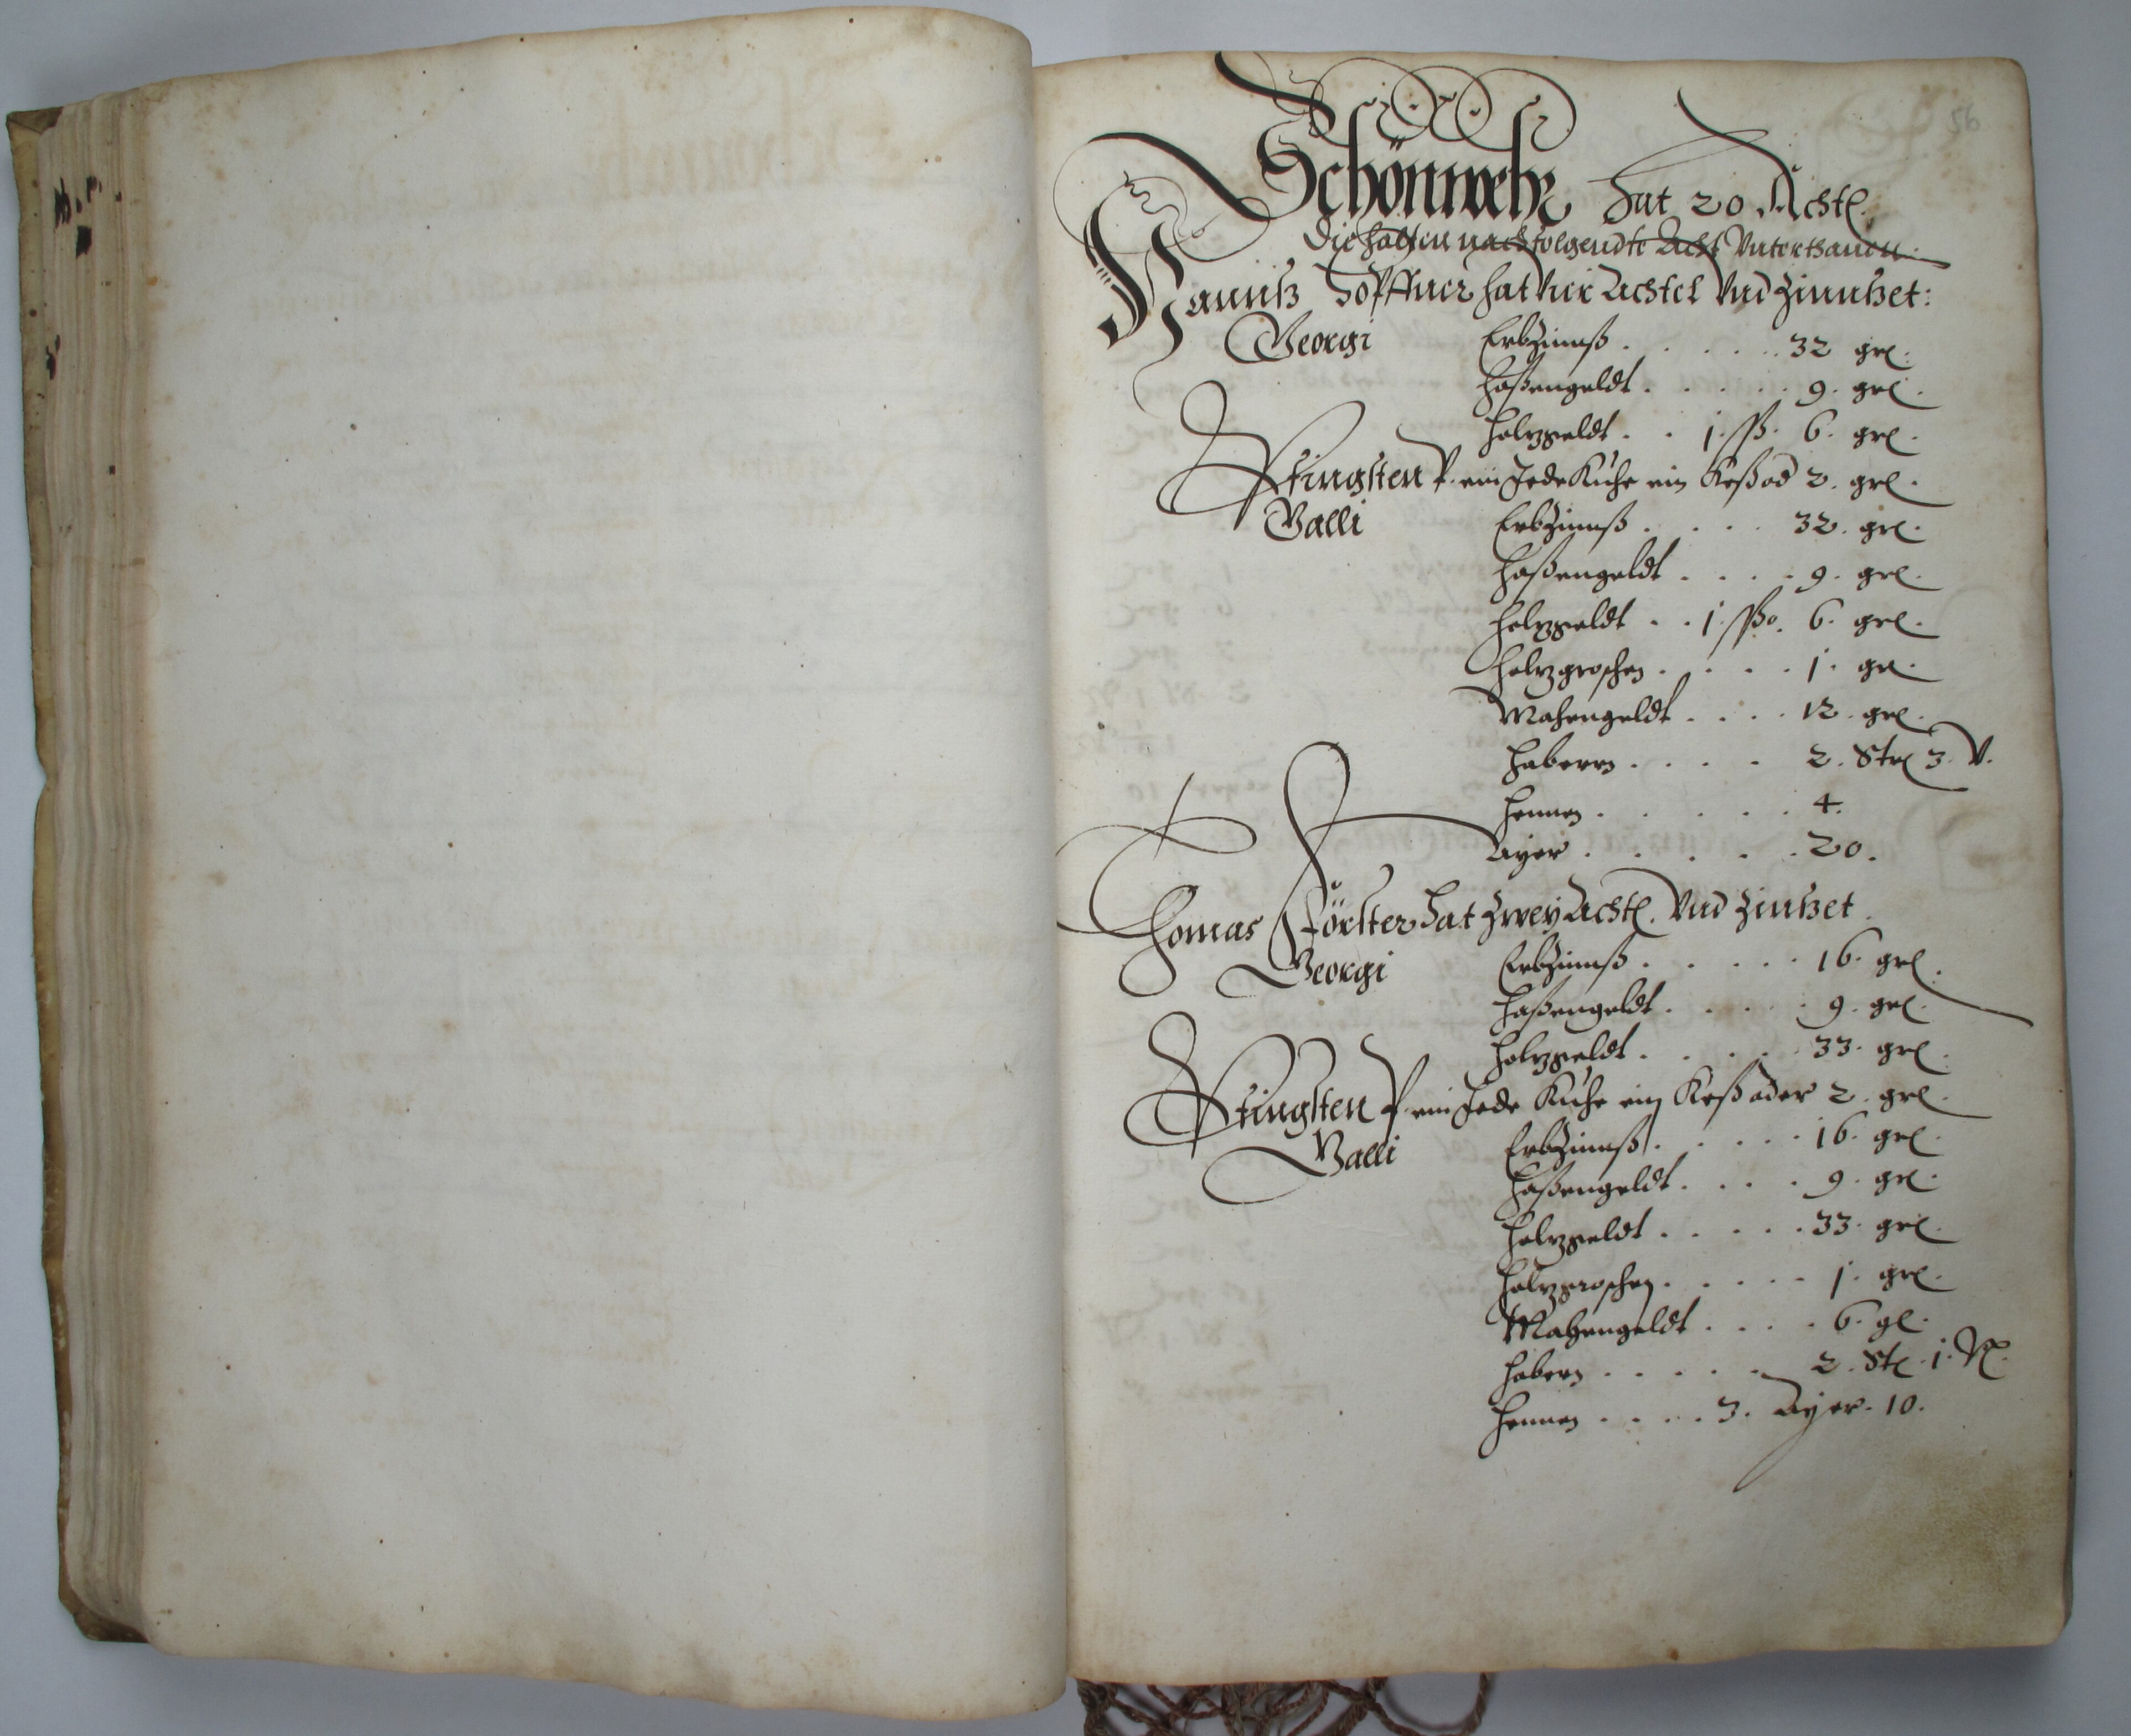 56
Schönwehr Hat 20 Achtl.
Die halten nachfolgendte Acht Vnterthanen
Hannß Höpffner hat Vier Achtel Vnd Zinnßet:
Georgi Erbzinnß . . . . . 32 grl.
Haßengeldt . . . . . 9. grl.
Holzgeldt . . 1. ßß. 6. grl.
Pfingsten P. ein Jede Kühe ein Keß od 2. grl.
Galli Erbzinnß . . . . 32. grl.
Haßengeldt . . . . 9. grl.
Holzgeldt . . 1. ßßo. 6. grl.
Holzgroschen . . . . 1. gr.
Mahengeldt . . . . 12. grl.
Habern . . . . 2. Strl 3. V.
Hennen . . . . . 4.
Ayer . . . . . 20.
Thomas Förster Hat Zwey Achtl. Vnd Zinßet.
Georgi Erbzinnß . . . . . 16. grl.
Haßengeldt . . . . . 9. grl.
Holzgeldt . . . . . 33. grl.
Pfingsten P ein Jede Kühe ein Keß oder 2. grl.
Galli Erbzinnß . . . . . 16. grl.
Haßengeldt . . . . 9. grl.
Holzgeldt . . . . . 33. grl.
Holzgroschen . . . . . 1. grl.
Mahengeldt . . . . 6. gl.
Habern . . . . . 2. Stl. 1. Vl.
Hennen . . . . 3. Ayer. 10.